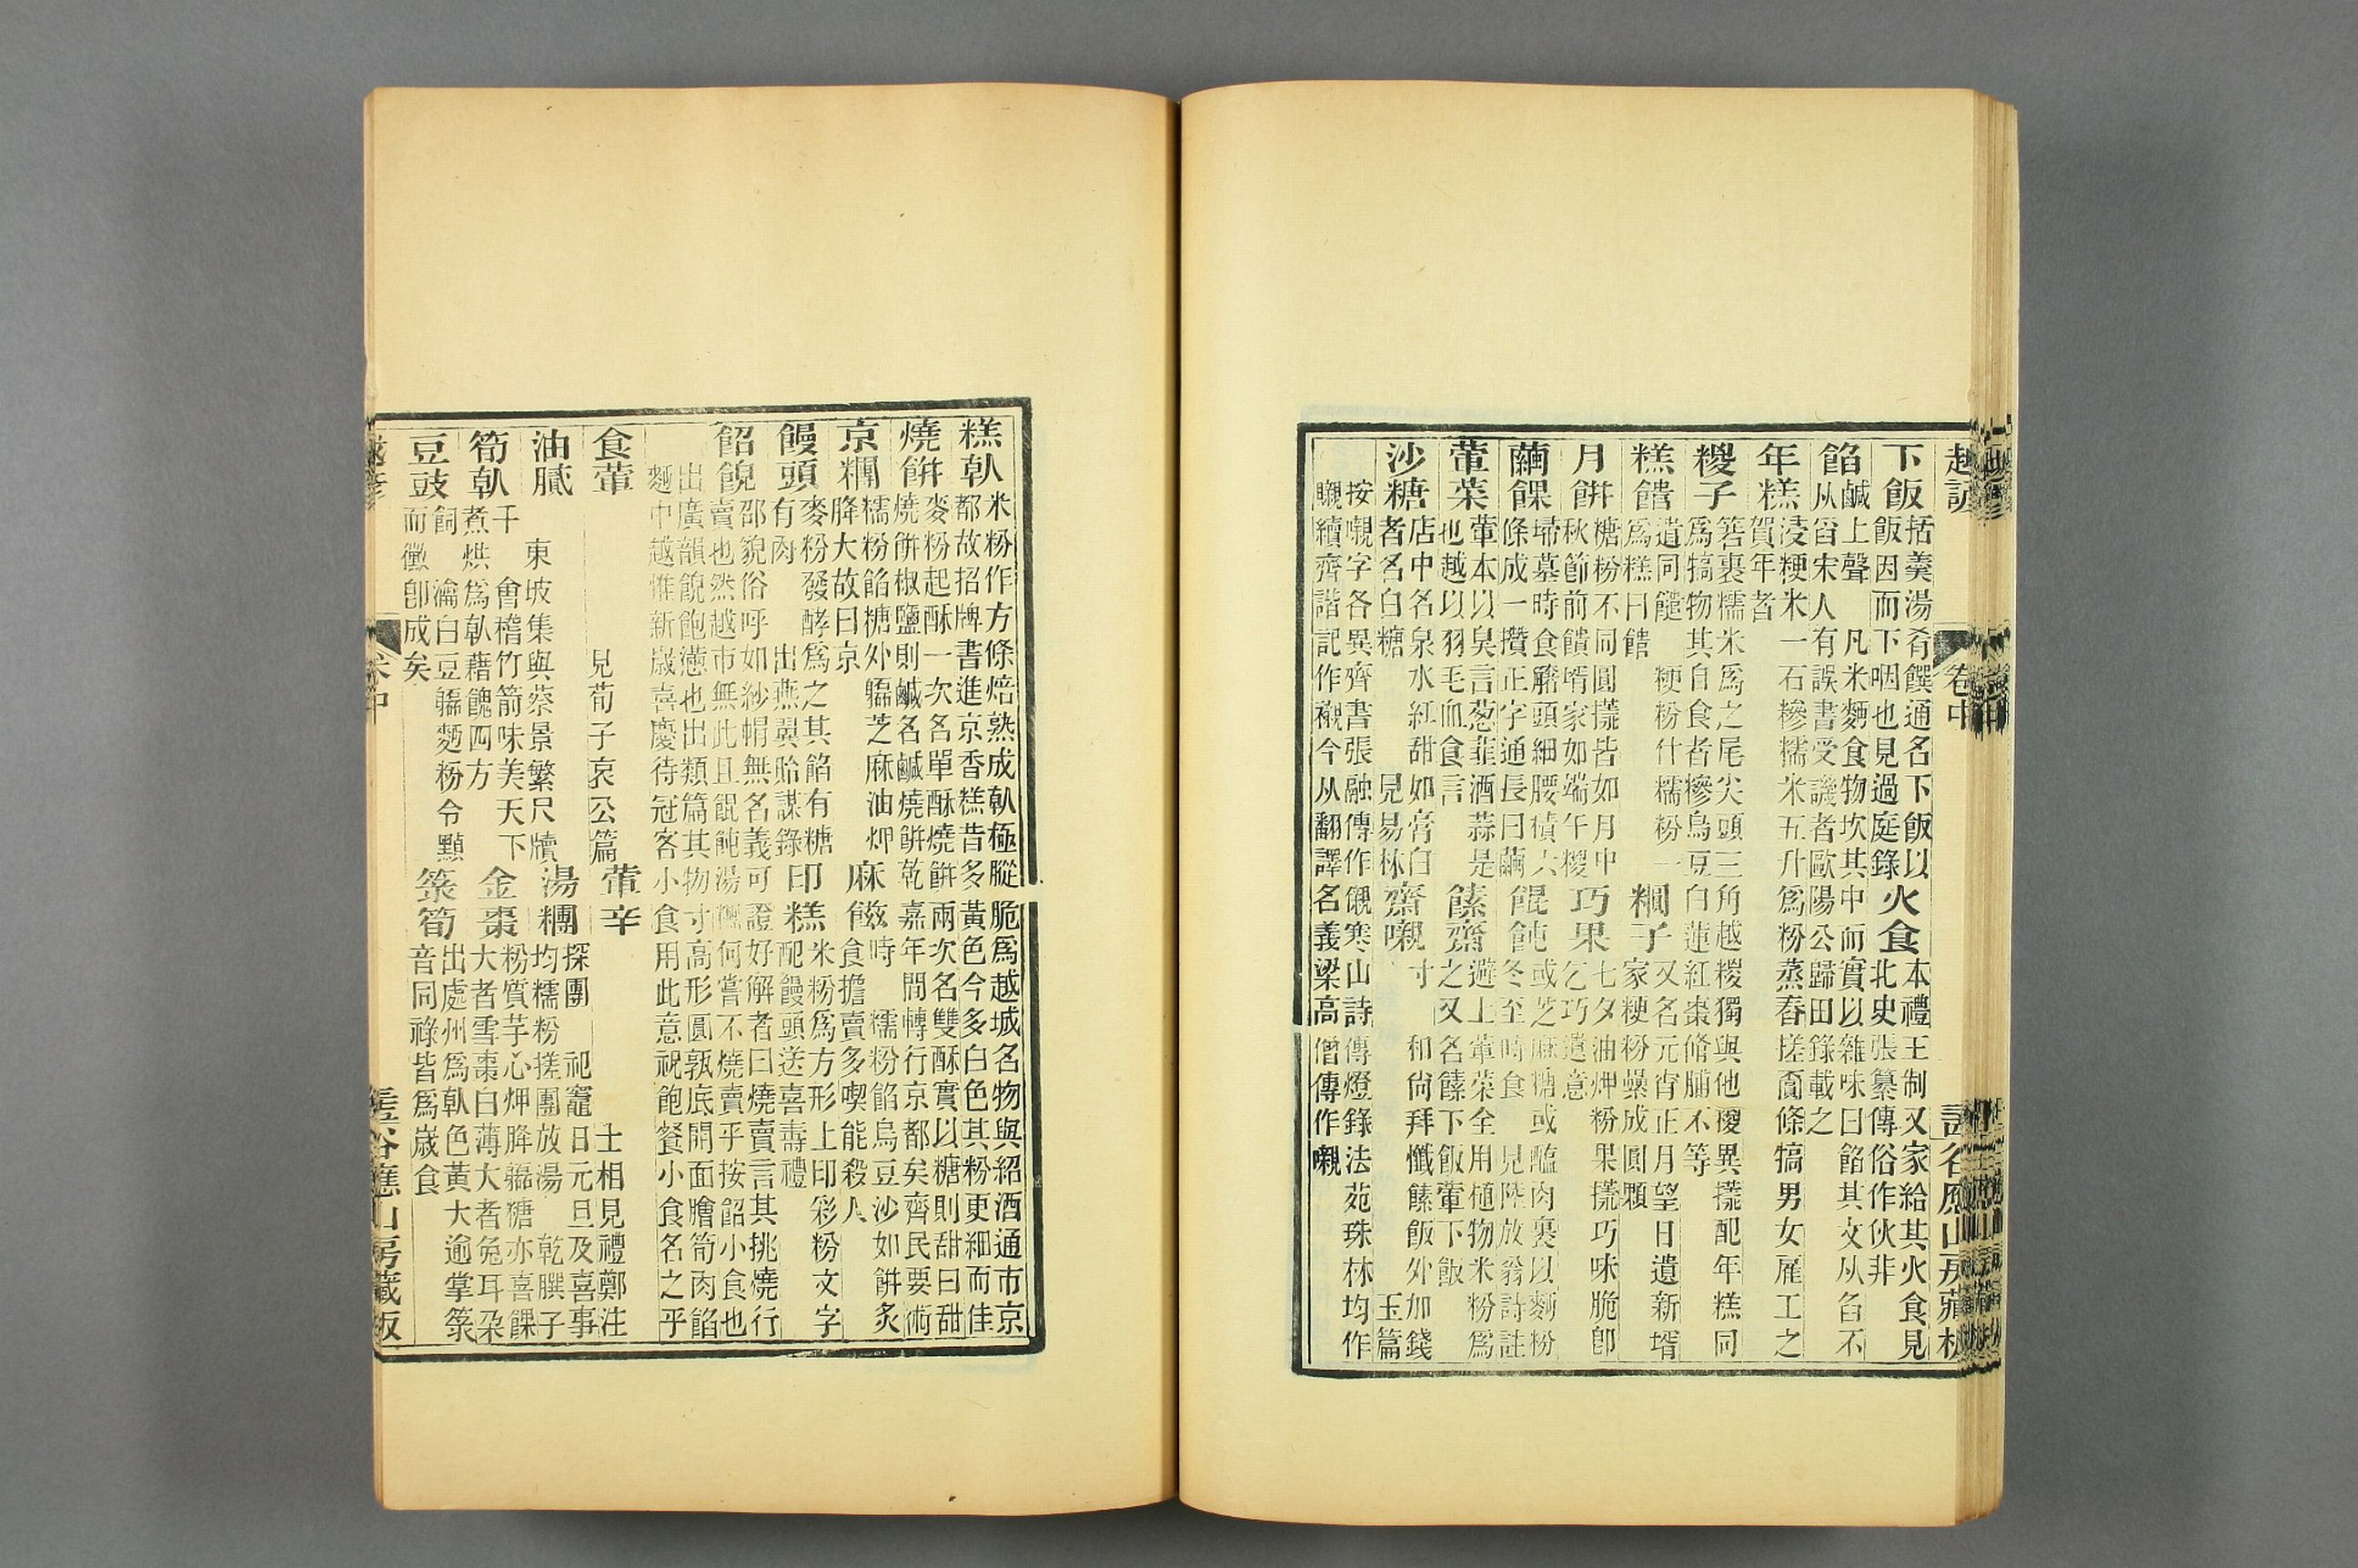 越諺 卷中
下飯
括羹湯肴饌通名下飯以
飯因而下咽也見過庭錄
火食
本禮王制又家給其火食見
北史張纂傳俗作伙非
餡
鹹上聲 凡米麵食物坎其中而實以雜味曰餡其文从臽不
从舀宋人有誤書受譏者歐陽公歸田錄載之
年糕
浸粳米一石摻糯米五升爲粉蒸舂搓賣條犒男女雇工之
賀年者
糭子
箬裹糯米爲之尾尖頭三角越糭獨與他糭異㨾配年糕同
爲犒物其自食者摻烏豆白蓮紅棗脩脯不等
糕
粳粉什糯粉一
爲糕曰
子
又名元宵正月望日遺新壻
家粳粉成圓顆
月餅
糖粉不同圓㨾皆如月中
秋節前饋壻家如端午糭
巧果
七夕油煠粉果㨾巧味脆卽
乞巧遺意
繭餜
埽墓時食頭細腰積六
條成一攢正字通長曰繭
餛飩
或芝麻糖或醢肉裹以麪粉
冬至時食 見陸放翁詩註
葷菜
葷本以臭言葱韮酒蒜是
也越以羽毛血食言
餗齋
避上葷菜全用植物米粉爲
之又名餗下飯葷下飯
沙糖
店中名泉水紅甜如膏白
者名白糖 見易林
齋嚫
寸 和尚拜懺餗飯外加錢
玉篇
按嚫字各異齊書張融傳作儭寒山詩傳燈錄法苑珠林均作
嚫續齊諧記作襯今从翻譯名義梁高僧傳作嚫
糕
米粉作方條焙熟成極鬆脆爲越城名物與紹酒通市京
都故招牌書進京香糕昔多黃色今多白色其粉更細而佳
燒餅
麥粉起酥一次名單酥燒餅兩次名雙酥實以糖則甜曰甜
燒餅椒鹽則鹹名鹹燒餅乾嘉年間轉行京都矣齊民要術
京糰
糯粉餡糖外䵑芝麻油煠
膖大故曰京
麻餈
時 糯粉餡烏豆沙如餅炙
食擔賣多喫能殺人
饅頭
麥粉發酵爲之其餡有糖
有肉 出燕翼貽謀錄
印糕
米粉爲方形上印彩粉文字
配饅頭送喜壽禮
邵貌俗呼如紗帽無名義可證好解者曰燒賣言其挑燒行
賣也然越市無此且餛飩湯何嘗不燒賣乎按小食也
出廣韻飽也出類篇其物寸高形圓孰底開面膾筍肉餡
麪中越惟新歲喜慶待冠客小食用此意祝飽餐小食名之乎
食葷
見荀子哀公篇
葷辛
士相見禮鄭注
油膩
東坡集與蔡景繁尺牘
湯糰
探團 祀竈日元旦及喜事
均糯粉搓團放湯 乾子
筍
千 會稽竹箭味美天下
煮烘爲藉餽四方
金棗
粉質芋心煠膖䵑糖亦喜餜
大者雪棗白薄大者兔耳朵
豆豉
飼 瀹白豆䵑麪粉令黦
而黴卽成矣
筍
出處州爲色黃大逾掌
音同祿皆爲歲食
卷中